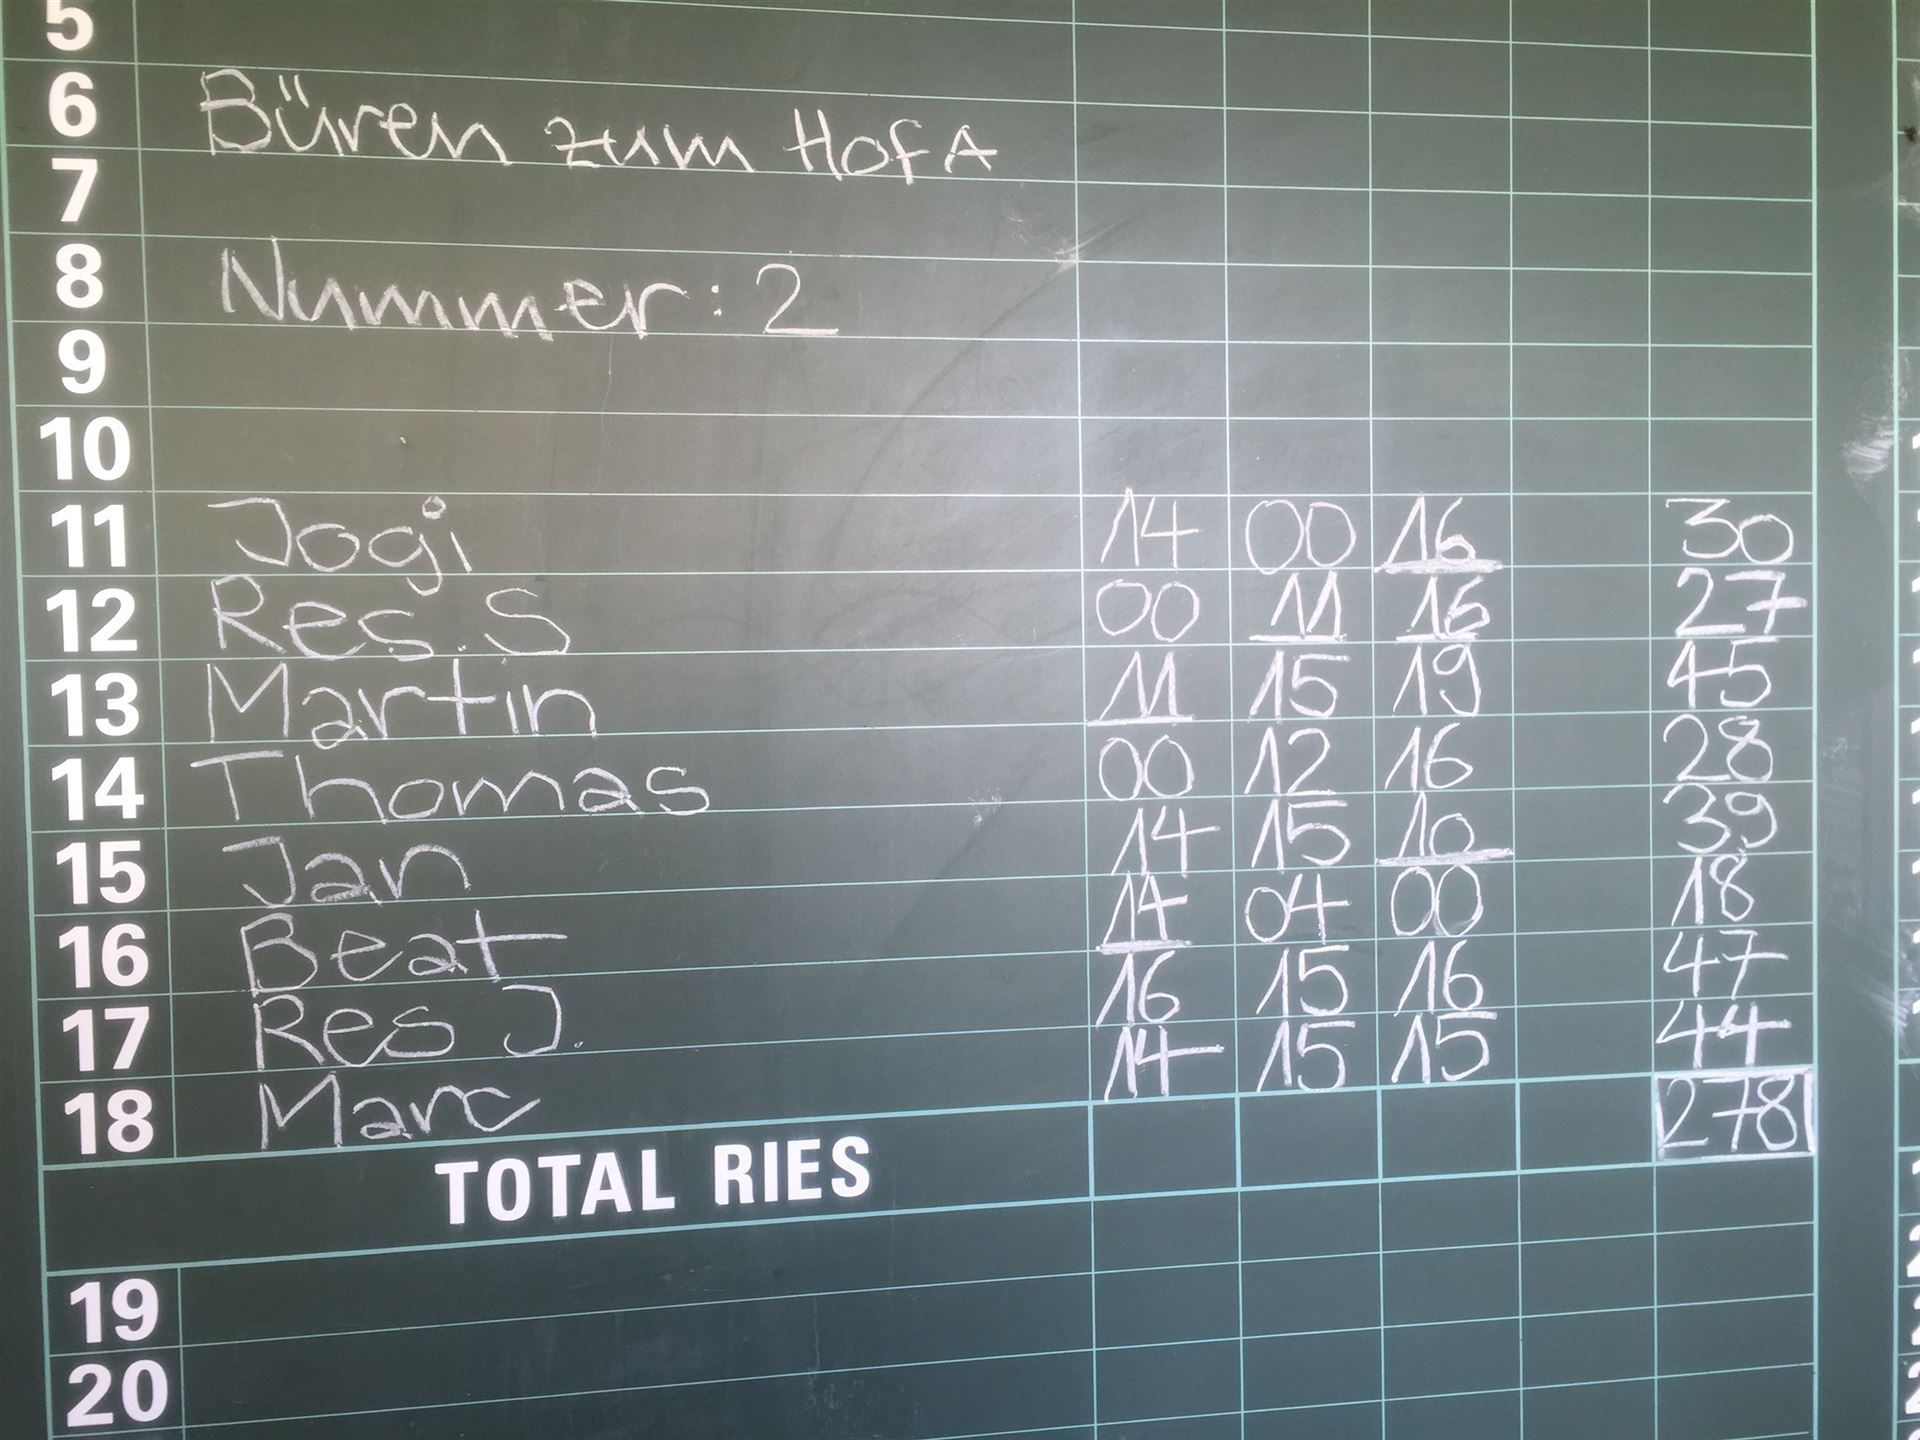 5
6 Büren zum Hof A
7
8 Nummer: 2
9
10
11 Jogi 14 00 16 30
12 Res. S 00 11 16 27
13 Martin 11 15 19 45
14 Thomas 00 12 16 28
15 Jan 14 15 10 39
16 Beat 14 04 00 18
17 Res J. 16 15 16 47
18 Marc 14 15 15 44
TOTAL RIES 278
19
20